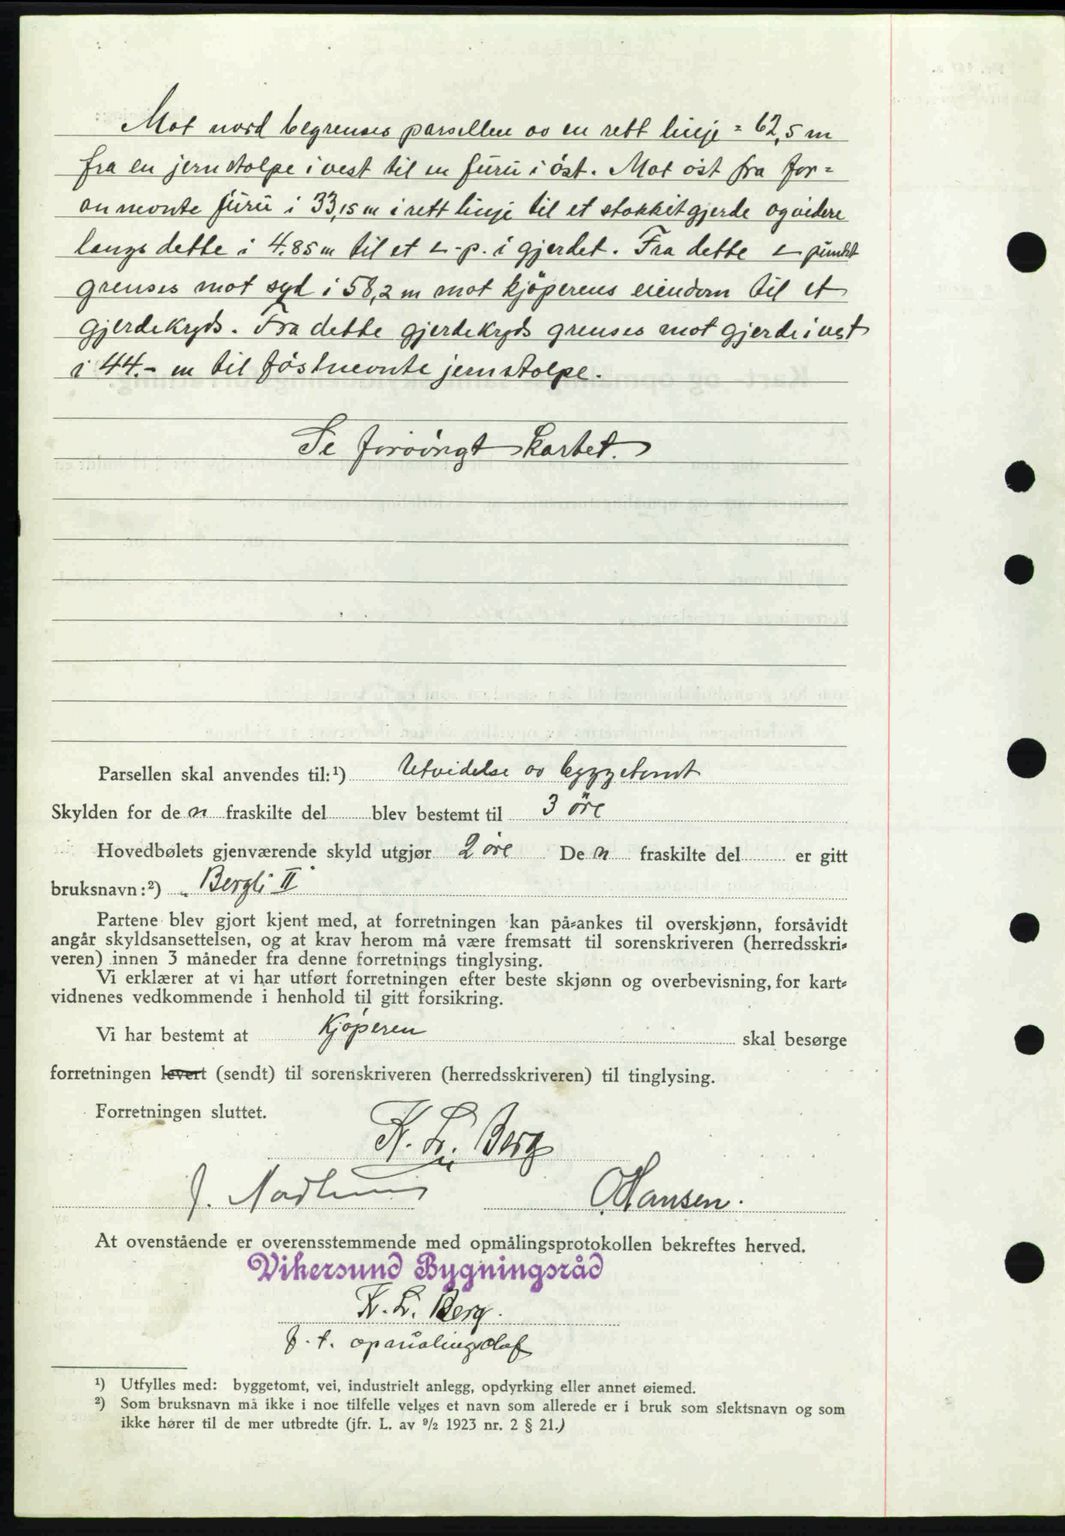 Mot nord begrenses parsellen av en rett linje = 62,5 m
fra en jernstolpe i vest til en furu i öst. Mot öst fra for=
an nevnte furu i 33,15 m i rett linje til et stakkitgjerde og videre
langs dette i 4.85 m til et ∟-p. i gjerdet. Fra dette ∟ punkt
grenses mot syd i 58,2 m mot kjöperens eiendom til et
gjerdekryds. Fra dette gjerdekryds grenses mot gjerde i vest
i 44.- m til föstnevnte jernstolpe.
Se forövrigt kartet.
Parsellen skal anvendes til:¹) Utvidelse av byggetomt
Skylden for de n fraskilte del blev bestemt til 3 öre
Hovedbølets gjenværende skyld utgjør 2 öre De n fraskilte del er gitt
bruksnavn:²) „Bergli II"
Partene blev gjort kjent med, at forretningen kan på-ankes til overskjønn, forsåvidt
angår skyldsansettelsen, og at krav herom må være fremsatt til sorenskriveren (herredsskri-
veren) innen 3 måneder fra denne forretnings tinglysing.
Vi erklærer at vi har utført forretningen efter beste skjønn og overbevisning, for kart-
vidnenes vedkommende i henhold til gitt forsikring.
Vi har bestemt at Kjöperen skal besørge
forretningen levert (sendt) til sorenskriveren (herredsskriveren) til tinglysing.
Forretningen sluttet.
K. L. Berg
J. O. Hansen.
At ovenstående er overensstemmende med opmålingsprotokollen bekreftes herved.
Vikersund Bygningsråd
K. L. Berg.
f. t. opmålingschef
¹) Utfylles med: byggetomt, vei, industrielt anlegg, opdyrking eller annet øiemed.
²) Som bruksnavn må ikke i noe tilfelle velges et navn som allerede er i bruk som slektsnavn og som
ikke hører til de mer utbredte (jfr. L. av 9/2 1923 nr. 2 § 21.)